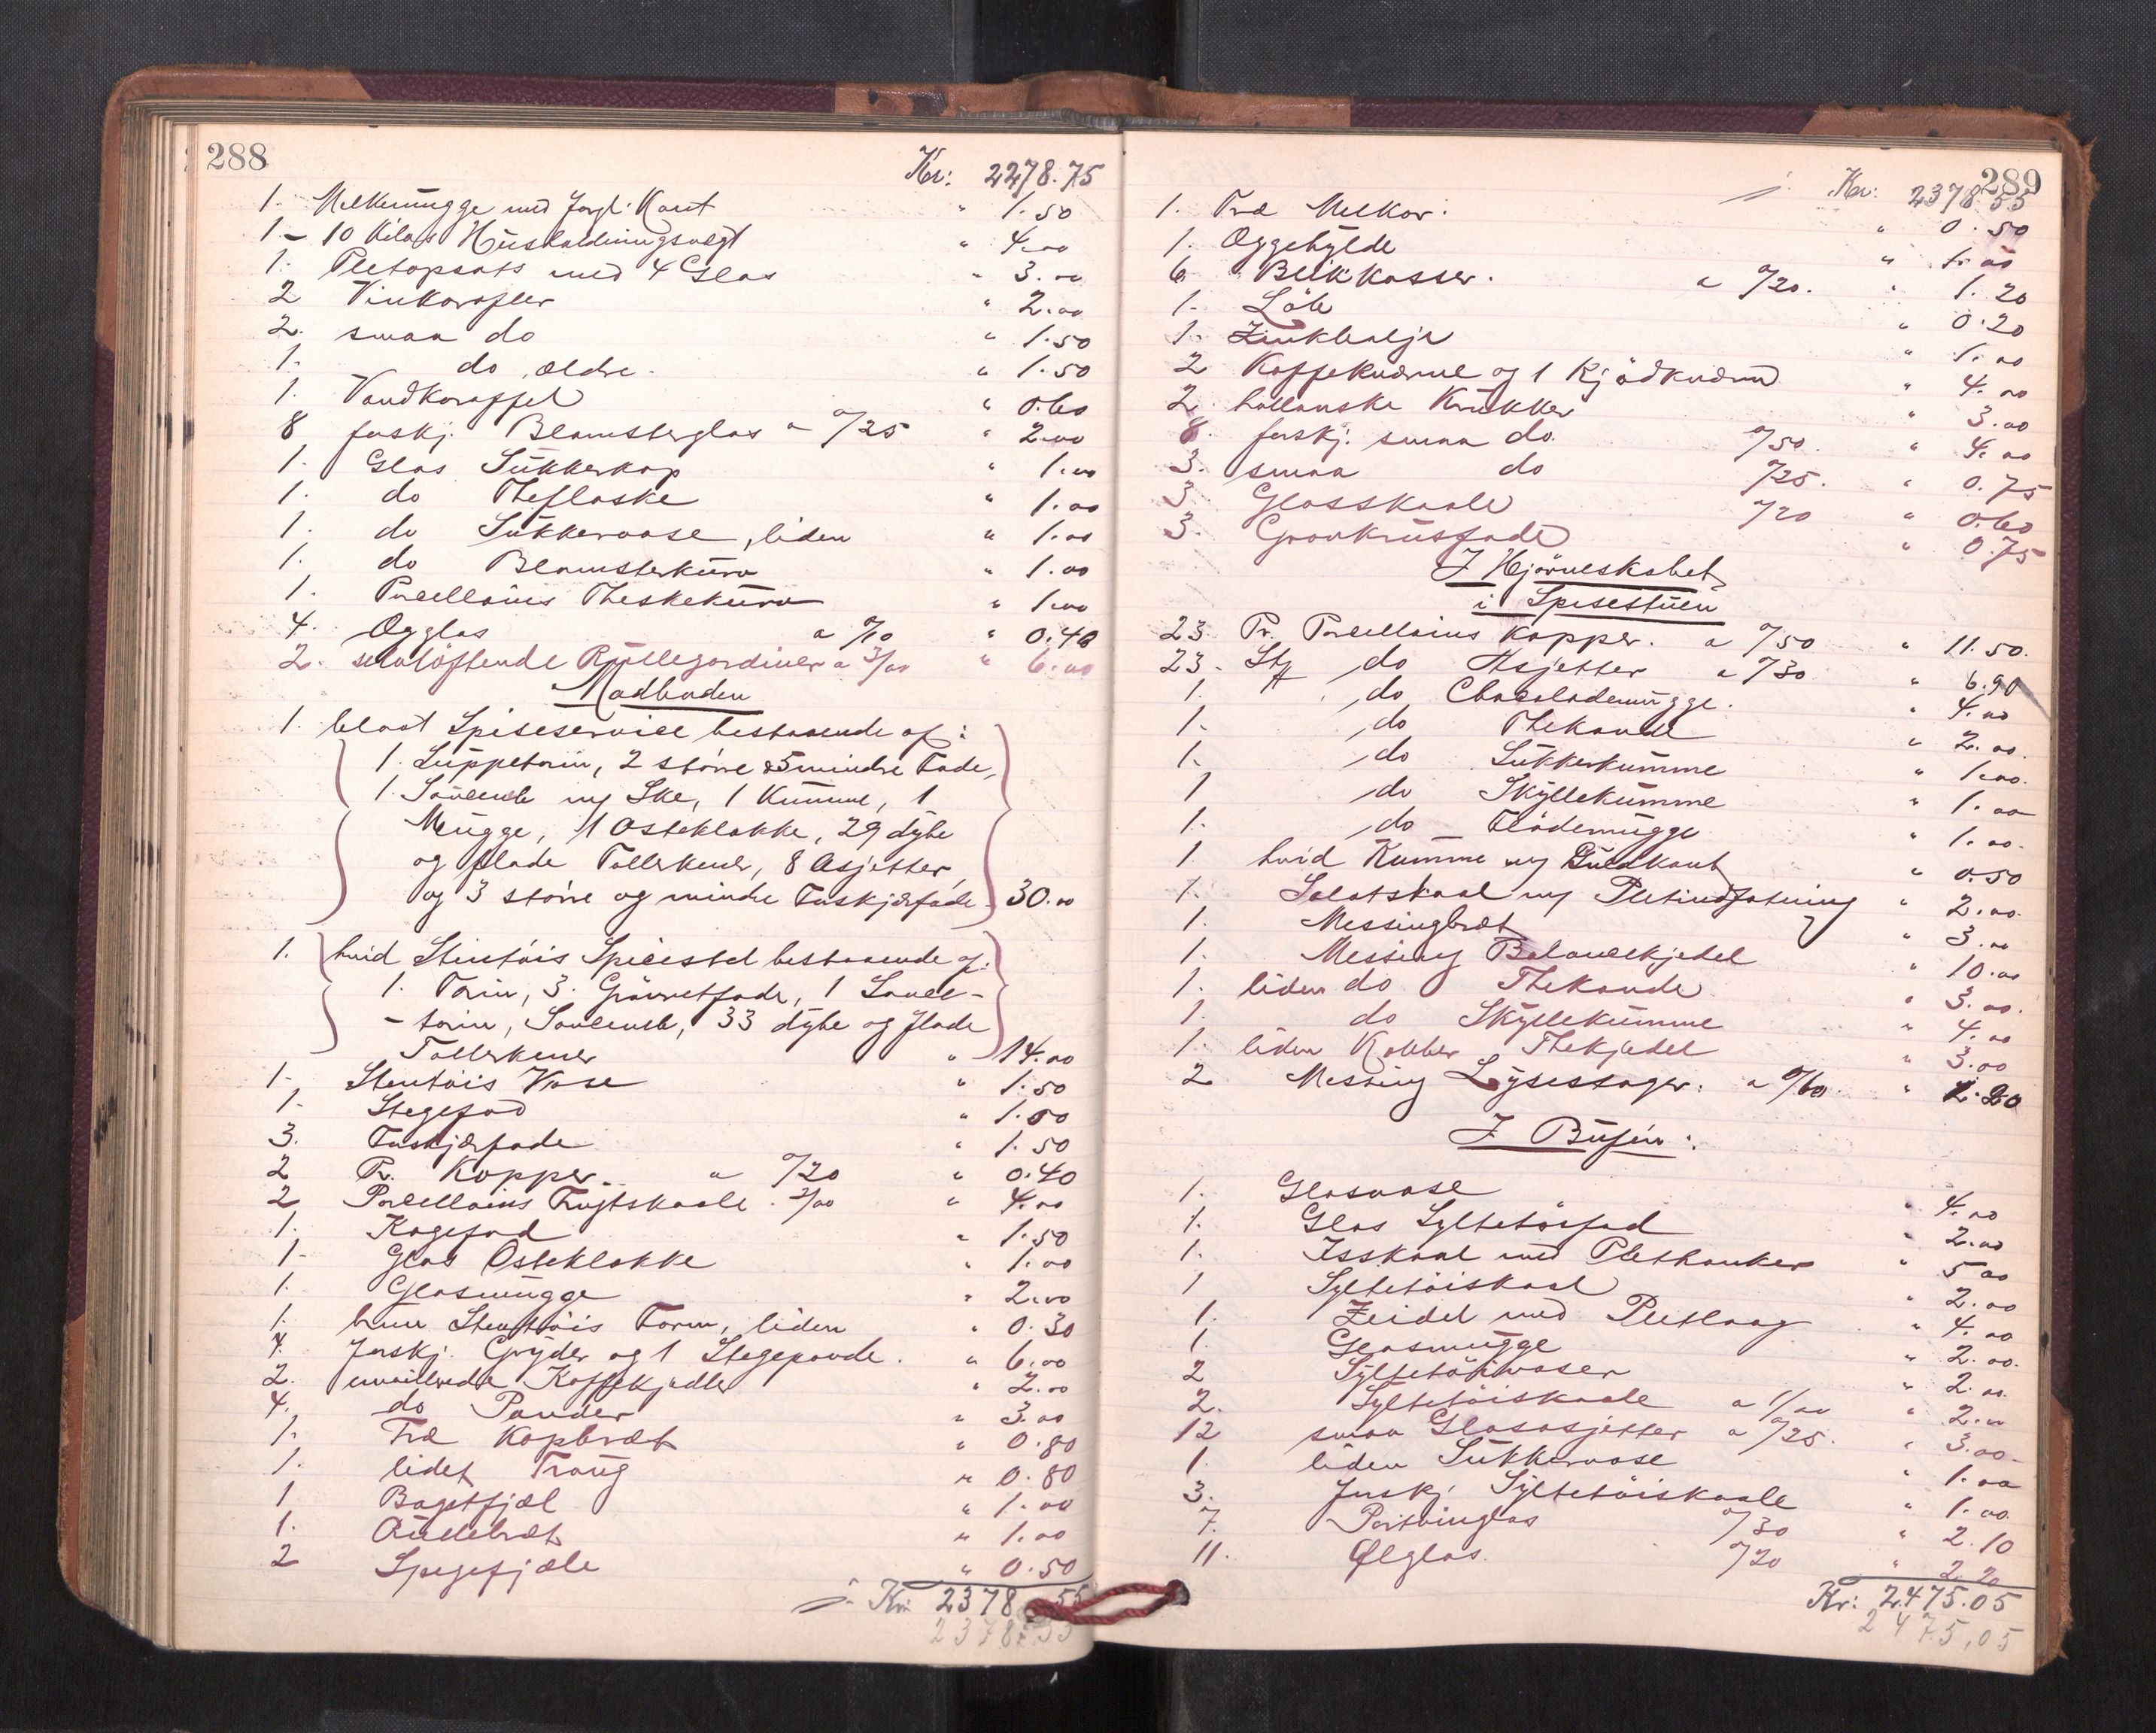 288
Kr: 2278.75
1. Melkemugge med forgl. Kant " 1.50
1 – 10 Kilos Husholdningsvægt " 4.00
1. Pletopsats med 4 Glas " 3.00
2 Vinkarafler " 2.00
2. smaa do " 1.50
1. do ældre. " 1.50
1. Vandkaraffel " 0.60
8 forskj. Blomsterglas a 0/25 " 2.00
1. Glas Sukkerkop " 1.00
1. do Theflaske " 1.00
1. do Sukkervase, liden " 1.00
1. do Blomsterkurv " 1.00
1. Porcellains Theskekurv " 1.00
4. Ægglas a 0/10 " 0.40
2. selvløftende Rullegardiner a 3/00 " 6.00
Madboden
1. blaat Spiseservice bestaaende af:
1. Suppeterin, 2 større & 5 mindre Fade,
1. Sauceneb m/ Ske, 1 Kumme, 1
Mugge, 1 Osteklokke, 29 dybe
og flade Tallerkener, 8 Asjetter,
og 3 større og mindre Firskjærfade 30.00
1. hvid Stentøis Spisestel bestaaende af:
1. Terin, 3. Grønnetfade, 1 Sauce-
- terin, Sauceneb, 33 dybe og flade
Tallerkener " 14.00
1. Stentøis Vase " 1.50
1. Stegefad " 1.50
3. Firskjærfade " 1.50
2 Pr. Kopper a 0/20 " 0.40
2 Porcellains Frugtskaale. 2/00 " 4.00
1. Kagefad " 1.50
1. Glas Osteklokke " 1.00
1. Glasmugge " 2.00
1. brun Stentøis Form, liden " 0.30
4. forskj. Gryder og 1 Stegepande. " 6.00
2. emailerede Kaffekjedler " 2.00
4. do Pander " 3.00
1. Træ Kopbræt " 0.80
1. lidet Traug " 0.80
1 Bagstfjæl " 1.00
1. Rullebræt " 1.00
2 Spegefjæle " 0.50
Kr. 2378.55
2378.55
289
Kr: 2378.55
1. Træ Melkar. " 0.50
1. Æggehylde " 1.00
6 Blikkasser. a 0/20. " 1.20
1. " 0.20
1. Zinkbalje " 1.00
2 Kaffekværne og 1 Kjødkværn " 4.00
2. hollanske Krukker " 3.00
8. forskj. smaa do. 0/50. " 4.00
3. smaa do 0/25. " 0.75
3. Glasskaale 0/20 " 0.60
3. Graakrusfade " 0.75
I Hjørneskabet
i Spisestuen
23 Pr. Porcellains Kopper. a 0/50 " 11.50.
23. Stk do Asjetter a 0/30 " 6.90
1. do Chocolademugge. " 4.00
1. do Thekande " 2.00.
1. do Sukkerkumme " 1.00.
1 do Skyllekumme " 1.00
1. do Flødemugge " 1.00.
1. hvid Kumme m/ Guldkant " 0.50
1. Salatskaal m/ Pletindfatning " 2.00.
1. Messingbræt " 3.00
1. Messing Balancekjedel " 10.00
1. liden do Thekande " 3.00.
1. do Skyllekumme " 4.00
1. liden Kobber Thekjedel " 3.00
2 Messing Lysestager. a 0/60. " 1.20
I Bufén:
1. Glasvase " 4.00
1. Glas Syltetøifad " 2.00
1. Isskaal med Plethanker " 5.00
1 Syltetøiskaal " 2.00
1. Zeidel med Pletlaag " 4.00
1. Glasmugge " 2.00.
2 Syltetøivaser " 2.00.
2. Syltetøiskaale a 1/00 " 2.00
12 smaa Glasasjetter a 0/25. " 3.00
1. liden Sukkervase " 1.00
3. forskj. Syltetøiskaale " 1.00.
7. Portvinglas 0/30 " 2.10
11. Ølglas 0/20 " 2.20
Kr: 2475.05
2475,05